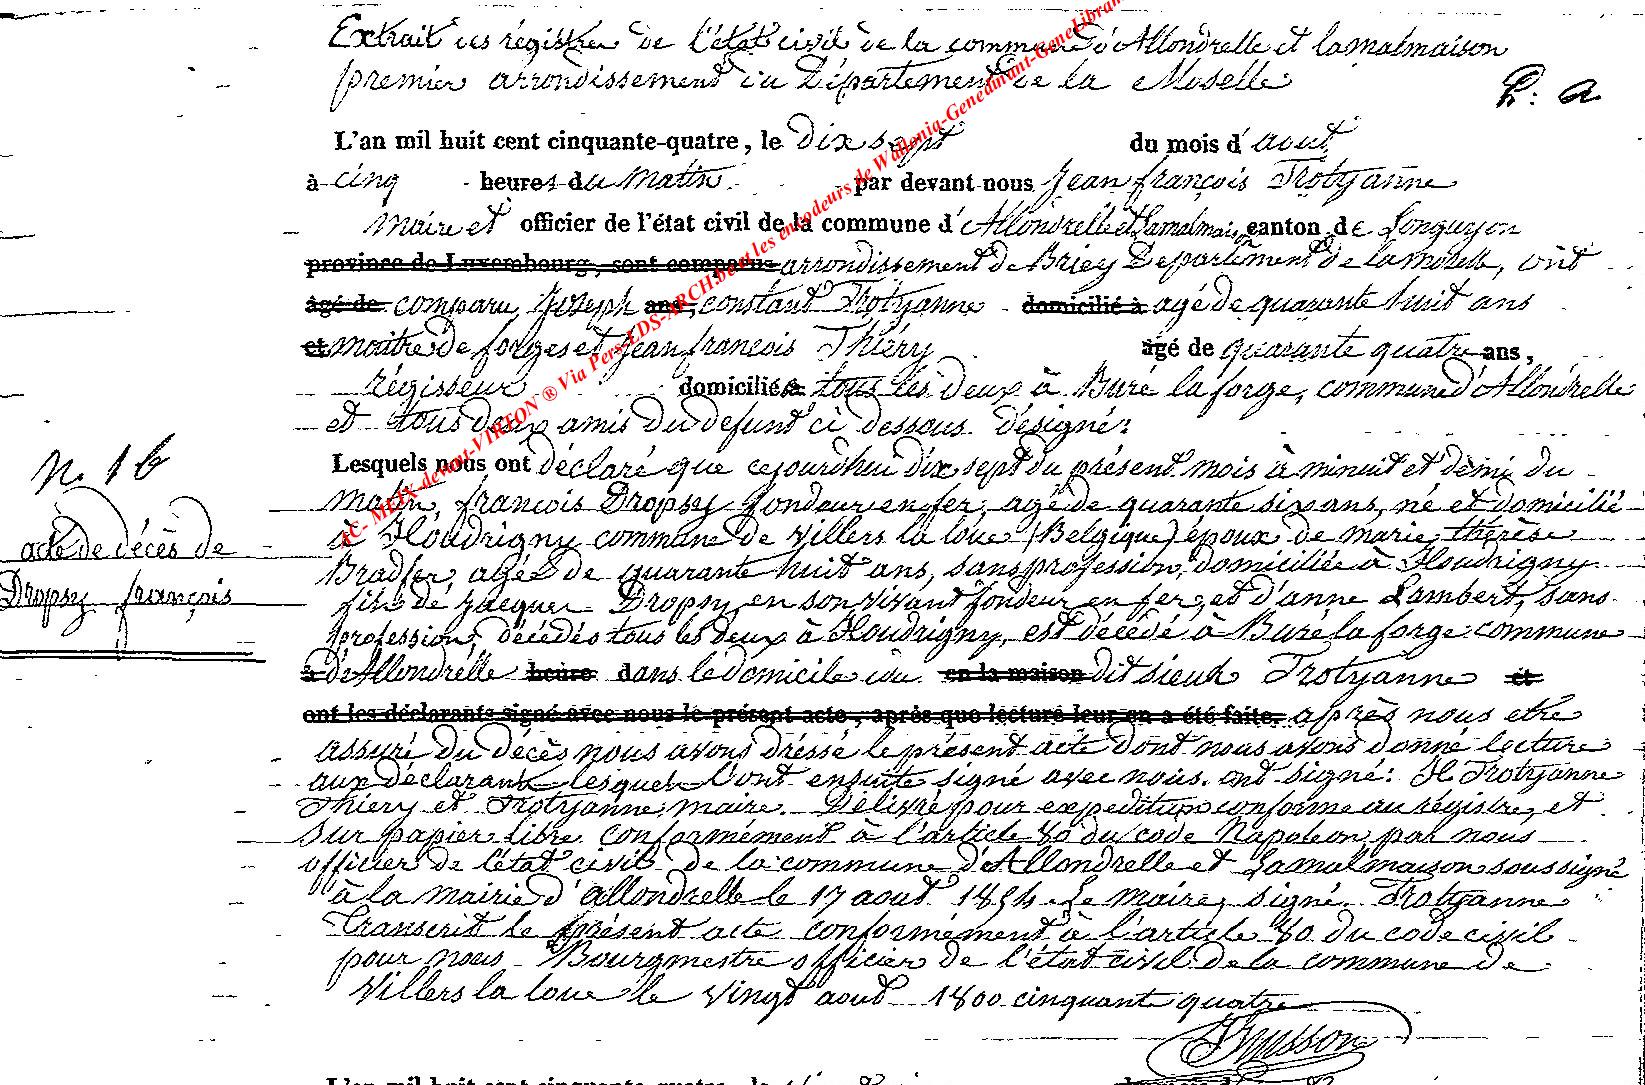 Extrait des régistres de l'état civil de la commune d'Allondrelle et lamalmaison
premier arrondissement du Département de la Moselle
P: A
L'an mil huit cent cinquante-quatre, le dix sept du mois d'aout
à cinq heures du matin par devant nous Jean françois Trotyanne
Maire et officier de l'état civil de la commune d'Allondrelle et Lamalmaison canton de Longuyon
province de Luxembourg, sont comparus arrondissement de Briey Département de la moselle, ont
âgé de comparu, Joseph ans, constant Trotyanne domicilié à agé de quarante huit ans
et maitre de forges et Jean françois Thiery âgé de quarante quatre ans,
régisseur domiciliés à tous les deux à Buré la forge, commune d'Allondrelle
et tous deux amis du defunt ci dessous désigné:
Lesquels nous ont déclaré que cejourdhui dix sept du présent mois à minuit et demi du
matin, françois Dropsy fondeur en fer, agé de quarante six ans, né et domicilié
à Houdrigny commune de Villers la loue (Belgique) époux de marie thérèse
Bradfer, agée de quarante huit ans, sans profession, domiciliée à Houdrigny
fils de Jacques Dropsy, en son vivant fondeur en fer, et d'anne Lambert, sans
profession, décédés tous les deux à Houdrigny, est décédé à Buré la forge commune
à d'Allondrelle heure dans le domicile du en la maison dit sieur Trotyanne et
ont les déclarants signé avec nous le présent acte, après que lecture leur en a été faite, après nous etre
assuré du décès nous avons dressé le présent acte dont nous avons donné lecture
aux déclarants lesquels l'ont ensuite signé avec nous. ont signé: Trotyanne
Thiery et Trotyanne, maire. Délivré pour expedition conforme au régistre, et
sur papier libre conformément à l'article 80 du code Napoléon, par nous
officier de l'état civil de la commune d'Allondrelle et Lamalmaison soussigné
à la mairie d'allondrelle le 17 aout 1854. Le maire, signé Trotyanne
Transcrit le présent acte conformément à l'article 80 du code civil
pour nous Bourgmestre officier de l'état civil de la commune de
Villers la loue le vingt aout 1800 cinquante quatre
N. 16
acte de décès de
Dropsy françois
AC- MEIX-devant-VIRTON ® Via Pers-LDS-ARCH.be et les encodeurs de Wallonia-Genedinant-GeneLibran
L'an mil huit cent cinquante-quatre, le